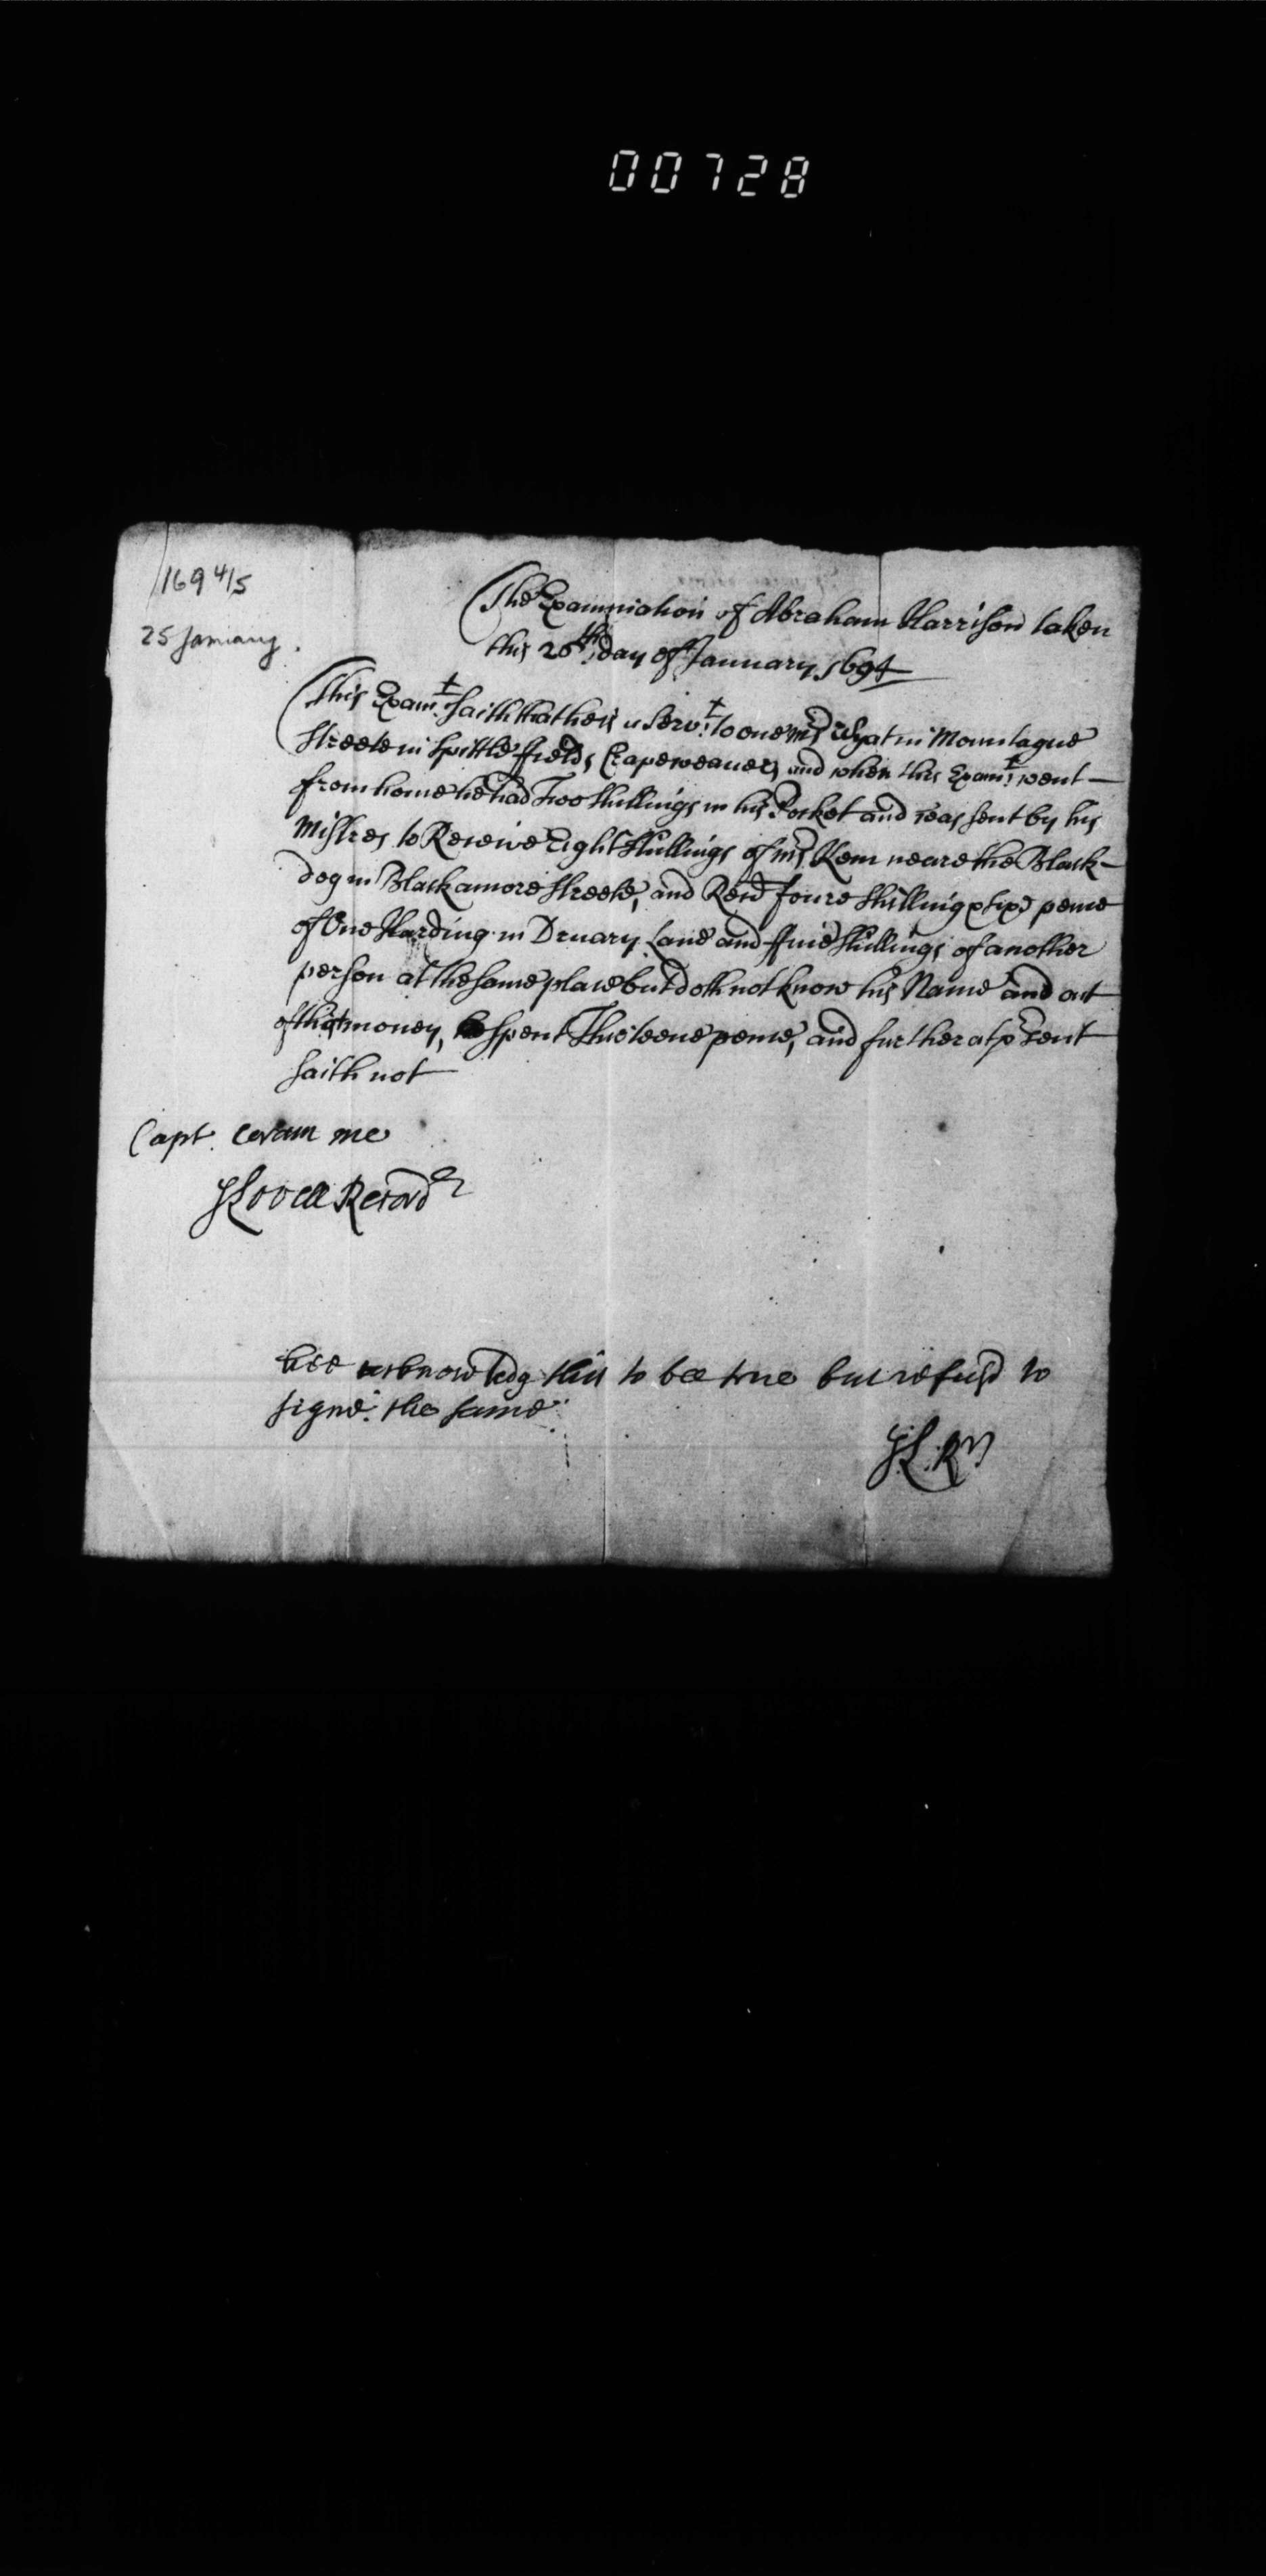 00728
1694/5
25 January.
The Examination of Abraham Harrison taken
this 26th day of January 1694
This Examt. saith that he is a Servt. to one mrs Wyat in Mountague
Streete in Spittle ffields Crapeweaver, and when this Examt. went
from home he had Two Shillings in his Pocket and was sent by his
Mistres to Receive Eight Shillings of mrs Kem neare the Black
dog in Blackamore Streete, and Recd foure Shilling & sixe pence
of One Harding in Druary Lane and ffive Shillings of another
person at the same place but doth not know his Name and out
of that money, he Spent Thirteene pence, and further at prsent
saith not
Capt. Coram me
S Lovell Recordr
hee acknowledg this to bee true but refusd to
signe the same
S. L. Rr